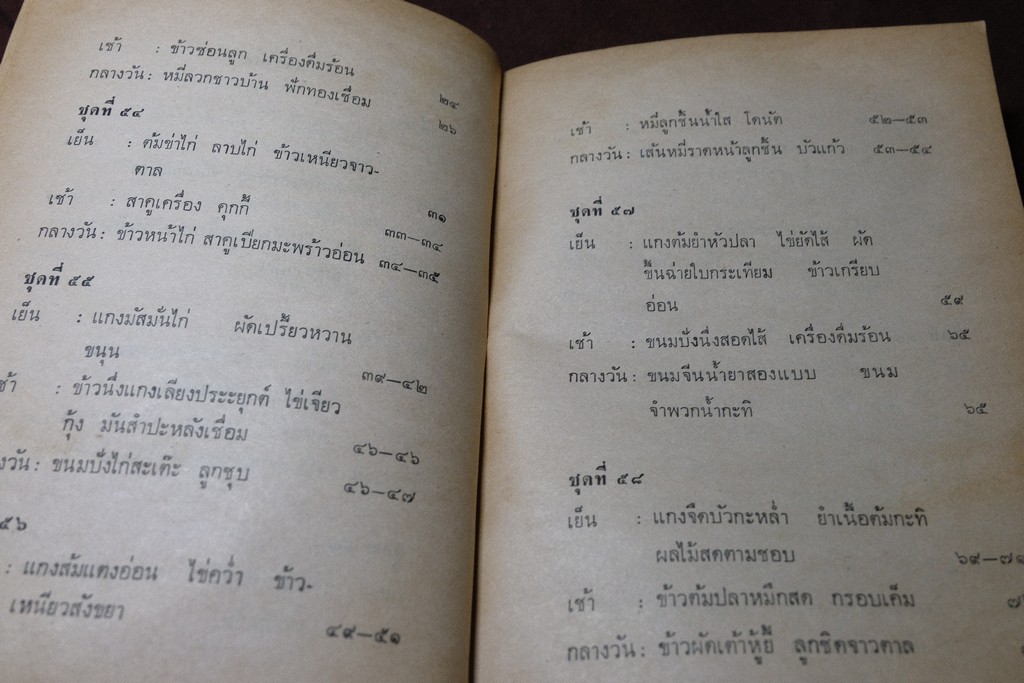 เช้า : ข้าวซ่อนลูก เครื่องดื่มร้อน ๒๔
กลางวัน : หมี่ลวกชาวบ้าน ฟักทองเชื่อม ๒๖
ชุดที่ ๕๔
เย็น : ต้มข่าไก่ ลาบไก่ ข้าวเหนียวจาว-
ตาล ๓๑
เช้า : สาคูเครื่อง คุกกี้ ๓๓—๓๔
กลางวัน : ข้าวหน้าไก่ สาคูเปียกมะพร้าวอ่อน ๓๔—๓๕
ชุดที่ ๕๕
เย็น : แกงมัสมั่นไก่ ผัดเปรี้ยวหวาน
ขนุน ๓๙—๔๒
ช้า : ข้าวนึ่งแกงเลียงประะยุกต์ ไข่เจียว
กุ้ง มันสำปะหลังเชื่อม ๔๖—๔๖
งวัน : ขนมปังไก่สะเต๊ะ ลูกชุบ ๔๖—๔๗
๕๖
: แกงส้มแตงอ่อน ไข่คว่ำ ข้าว-
เหนียวสังขยา ๔๙—๕๑
เช้า : หมี่ลูกชิ้นน้ำใส โดนัต ๕๒—๕๓
กลางวัน : เส้นหมี่ราดหน้าลูกชิ้น บัวแก้ว ๕๓—๕๔
ชุดที่ ๕๗
เย็น : แกงต้มยำหัวปลา ไข่ยัดไส้ ผัด
ขึ้นฉ่ายใบกระเทียม ข้าวเกรียบ
อ่อน ๕๙
เช้า : ขนมปังนึ่งสอดไส้ เครื่องดื่มร้อน ๖๕
กลางวัน : ขนมจีนน้ำยาสองแบบ ขนม
จำพวกน้ำกะทิ ๖๕
ชุดที่ ๕๘
เย็น : แกงจืดบัวกะหล่ำ ยำเนื้อต้มกะทิ
ผลไม้สดตามชอบ ๖๙—๗๑
เช้า : ข้าวต้มปลาหมึกสด กรอบเค็ม ๗
กลางวัน : ข้าวผัดเต้าหู้ยี้ ลูกชิดจาวตาล